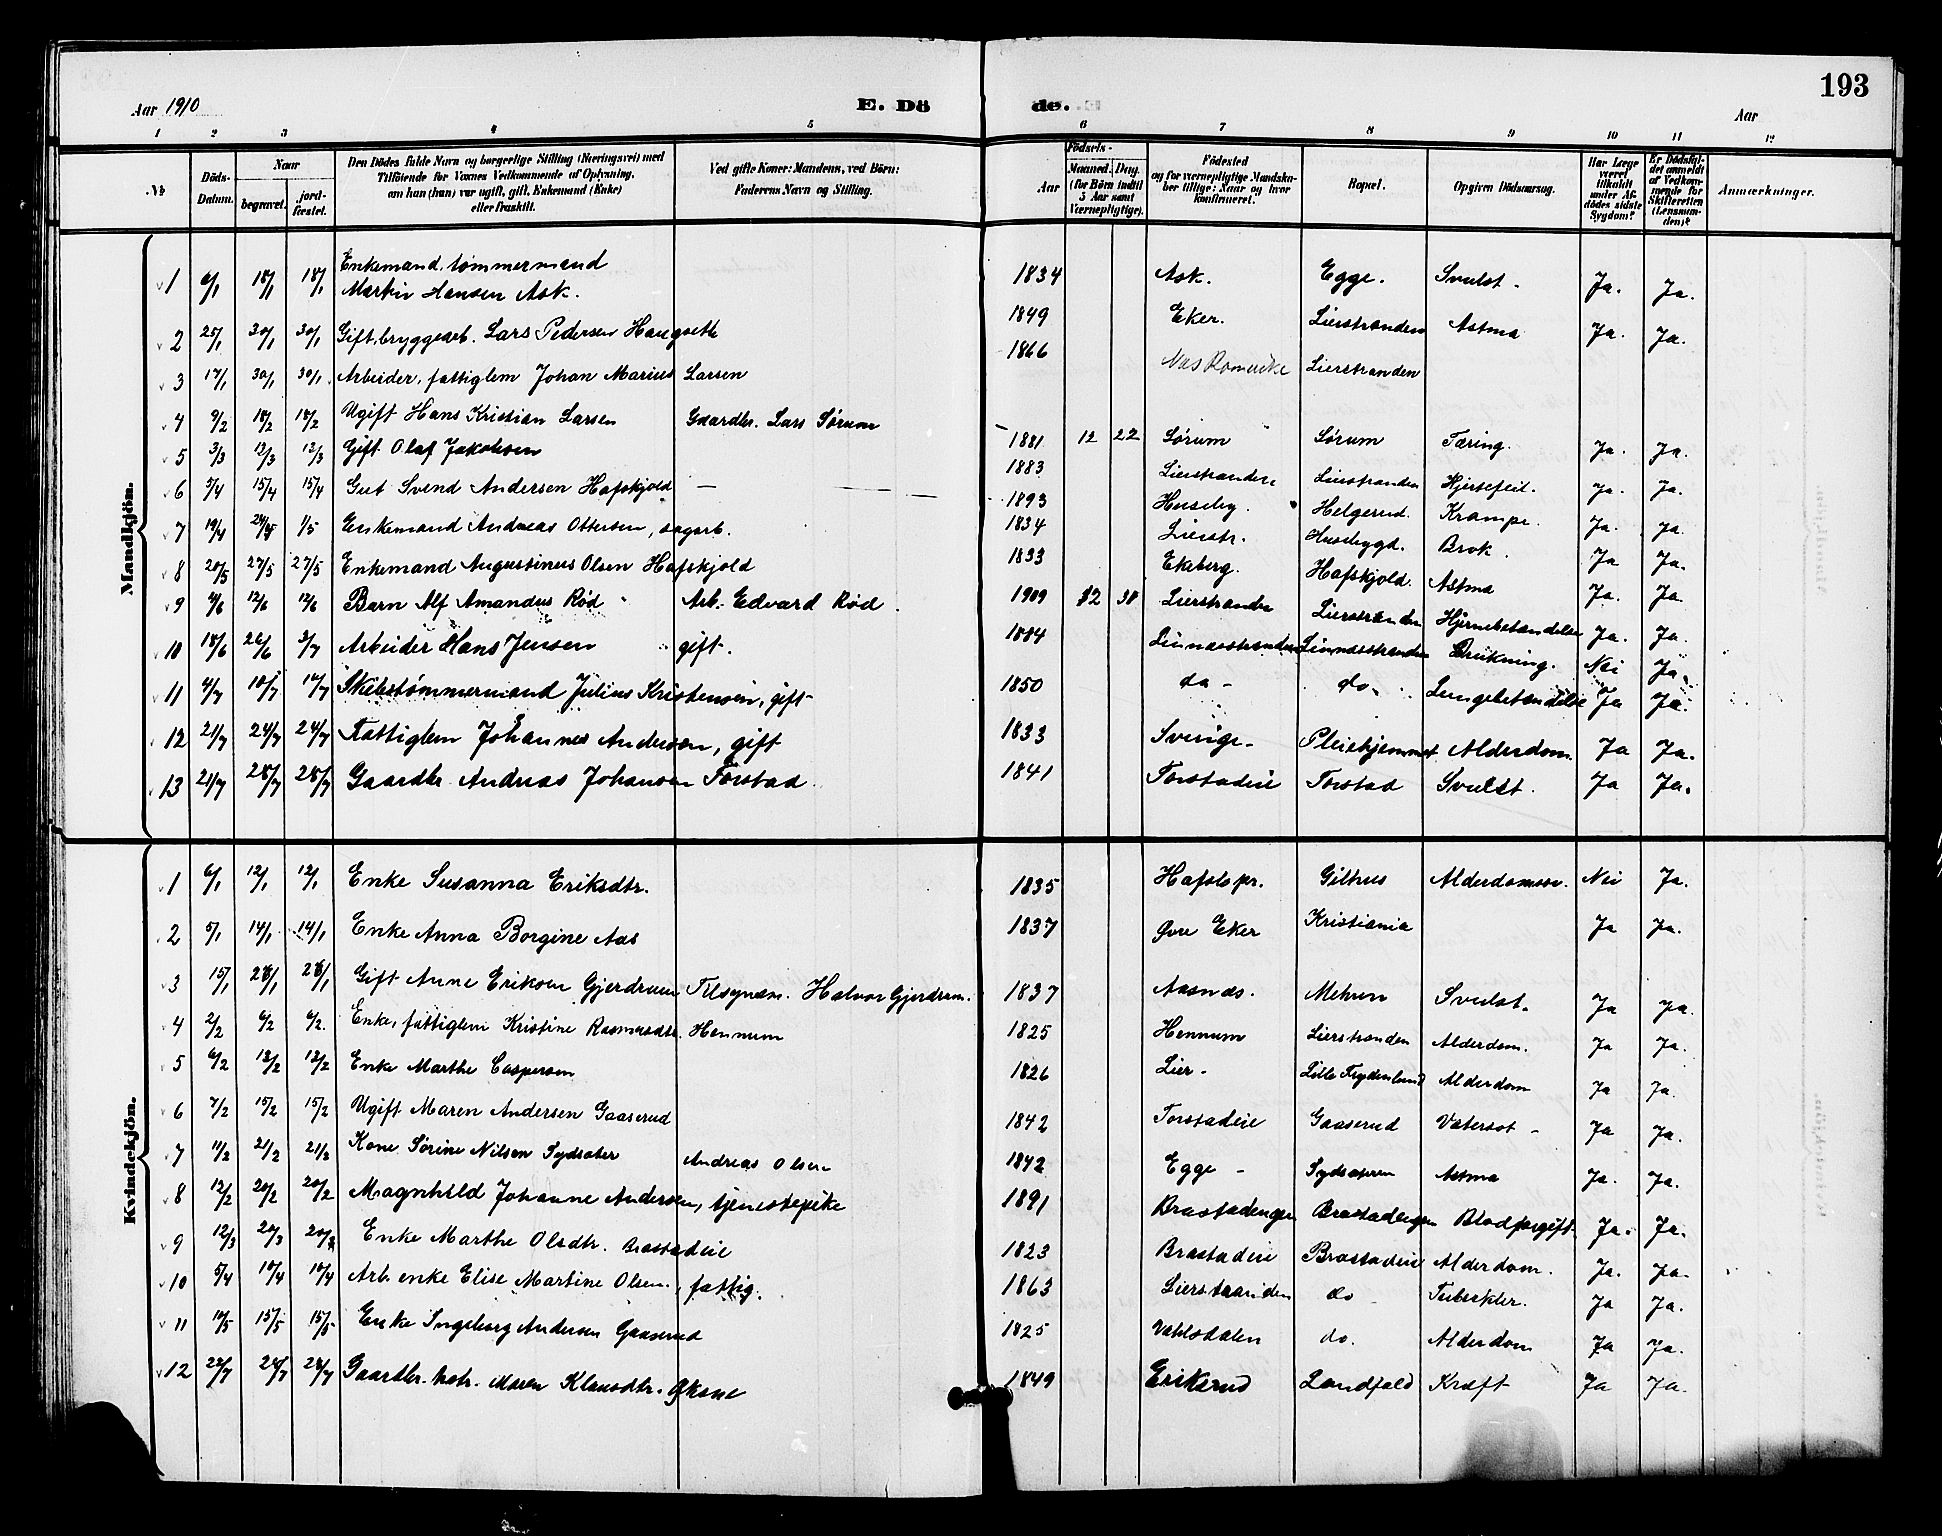 193
Aar 1910
E. Dö
de.
Aar
1 2 3 4 5 6 7 8 9 10 11 12
№
Döds-Datum.
Naar
begravet.
jord-fæstet.
Den Dödes fulde Navn og borgerlige Stilling (Næringsvei) med Tilföiende for Voxnes Vedkommende af Oplysning, om han (hun) var ugift, gift, Enkemand (Enke) eller fraskilt.
Ved gifte Koner: Mandens, ved Börn: Faderens Navn og Stilling.
Födsels-
Aar
Maaned. Dag. (for Börn indtil 5 Aar samt Værnepligtige).
Födested og for værnepligtige Mandskaber tillige: Naar og hvor konfirmeret.
Bopæl.
Opgiven Dödsaarsag.
Har Læge været tilkaldt under Afdödes sidste Sygdom?
Er Dödsfaldet anmeldt af Vedkommende for Skifteretten (Lensmanden)?
Anmærkninger.
Mandkjön.
1 6/1 18/1 18/1 Enkemand, tømmermand Martin Hansen Ask. 1834 Ask. Egge. Svulst. Ja. Ja.
2 25/1 30/1 30/1 Gift, bryggearb. Lars Pedersen Haugseth 1849 Eker. Lierstranden Astma Ja. Ja.
3 17/1 30/1 30/1 Arbeider, fattiglem Johan Marius Larsen 1866 Nas Romerike Lierstranden
4 9/2 18/2 18/2 Ugift Hans Kristian Larsen Gaardbr. Lars Sørum 1881 12 22 Sørum Sørum Tæring. Ja. Ja.
5 3/3 12/3 12/3 Gift Olaf Jakobsen 1883 Lierstranden Lierstranden Hjertefeil. Ja. Ja.
6 5/4 15/4 15/4 Gut Svend Andersen Hafskjold — 1893 Huseby. Helgerud. Krampe. Ja. Ja.
7 19/4 24/4 1/5 Enkemand Andreas Ottersen, sagarb. 1834 Lierstr. Husebygd. Brok. Ja Ja.
8 20/5 27/5 27/5 Enkemand Augustinus Olsen Hafskjold 1833 Ekeberg. Hafskjold. Astma Ja. Ja.
9 4/6 12/6 12/6 Barn Alf Amandus Rød Arb. Edvard Rød. 1909 12 30 Lierstranden Lierstranden Hjernebetændelse Ja. Ja.
10 18/6 26/6 3/7 Arbeider Hans Jensen gift. 1884 Linnesstranden Linnesstranden Drukning. Nei Ja.
11 4/7 10/7 10/7 Skibstømmermand Julius Kristensen, gift 1850 do - do. Lungebetændelse Ja Ja.
12 21/7 24/7 24/7 Fattiglem Johannes Andersen, gift 1833 Sverige. Pleiehjemmet Alderdom. Ja Ja.
13 21/7 28/7 28/7 Gaardbr. Andreas Johansen Torstad. 1841 Torstadeie Torstad Svulst. Ja Ja.
Kvindekjön.
1 6/1 12/1 12/1 Enke Susanna Eriksdtr. 1835 Hafslopr. Gilhus Alderdomssv. Nei Ja.
2 5/1 14/1 14/1 Enke Anna Borgine Aas 1837 Øvre Eker Kristiania Ja Ja.
3 15/1 28/1 28/1 Gift Anne Eriksen Gjerdrum Tilsynsm. Halvor Gjerdrum. 1837 Aasnæs. Mehren Svulst. Ja Ja.
4 2/2 6/2 6/2. Enke, fattiglem Kristine Rasmusdtr. Hennum 1825 Hennum Lierstranden Alderdom. Ja Ja.
5 6/2 12/2 12/2 Enke Marthe Caspersen 1826 Lier. Lille Frydenlund Alderdom Ja Ja.
6 7/2 15/2 15/2 Ugift Maren Andersen Gaaserud 1842 Torstadeie Gaaserud Vatersot - Ja Ja.
7 11/2 21/2 21/2 Kone Sørine Nilsen Sydsæter Andreas Olsen 1842 Egge - Sydsæteren Astma Ja. Ja.
8 12/2 20/2 20/2 Magnhild Johanne Andersen, tjenestepike 1891 Brastadengen Brastadengen Blodforgift. Ja. Ja.
9 12/3 20/3 20/3 Enke Marthe Olsdtr. Brastadeie 1823 Brastadeie Brastadeie Alderdom. Ja. Ja.
10 5/4 10/4 10/4 Arb. enke Elise Martine Olsen, fattig. 1863 Lierstranden do Tuberkler. Ja Ja.
11 10/5 15/5 15/5 Enke Ingeborg Andersen Gaaserud 1825 Vahlsdalen do. Alderdom Ja Ja.
12 22/7 28/7 28/7 Gaardbr. Maren Klausdtr. 1849 Eriksrud Landfald Kræft Ja Ja.